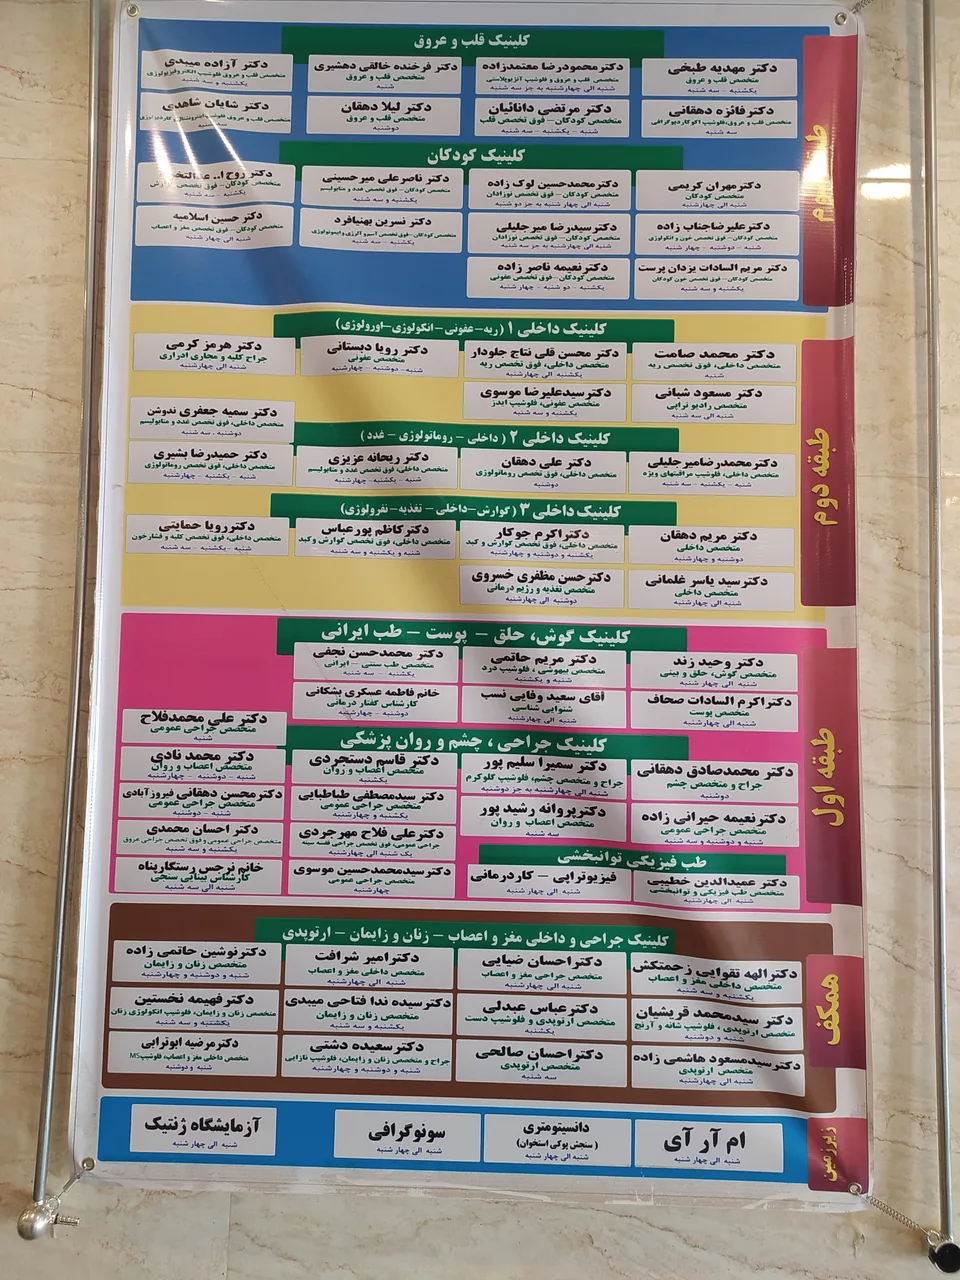 کلینیک قلب و عروق
دکتر مهدیه طبخی
متخصص قلب و عروق
یکشنبه - سه شنبه
دکتر محمودرضا معتمدزاده
متخصص قلب و عروق و فلوشیپ آنژیوپلاستی
شنبه الی چهارشنبه به جز سه شنبه
دکتر فرخنده خالقی دهشیری
متخصص قلب و عروق
شنبه
دکتر آزاده میبدی
متخصص قلب و عروق فلوشیپ الکتروفیزیولوژی
یکشنبه و سه شنبه
دکترفائزه دهقانی
متخصص قلب و عروق،فلوشیپ اکوکاردیوگرافی
سه شنبه
دکتر مرتضی دانائیان
متخصص کودکان - فوق تخصص قلب
شنبه - یکشنبه - سه شنبه
دکتر لیلا دهقان
متخصص قلب و عروق
دوشنبه
دکتر شایان شاهدی
متخصص قلب و عروق فلوشیپ
طبقه سوم
کلینیک کودکان
دکترمهران کریمی
متخصص کودکان
شنبه الی چهارشنبه
دکترمحمدحسین لوک زاده
متخصص کودکان - فوق تخصص نوزادان
شنبه الی چهارشنبه به جز دو شنبه
دکتر ناصرعلی میرحسینی
متخصص کودکان - فوق تخصص غدد و متابولیسم
یکشنبه و سه شنبه
دکتر روح ا..
متخصص کودکان - فوق تخصص گوارش
یکشنبه - سه شنبه
دکترعلیرضاجناب زاده
متخصص کودکان - فوق تخصص خون و انکولوژی
شنبه - دوشنبه - چهار شنبه
دکترسیدرضا میرجلیلی
متخصص کودکان - فوق تخصص نوزادان
شنبه الی چهارشنبه به جز سه شنبه
دکتر نسرین بهنیافرد
متخصص کودکان-فوق تخصص آسم و آلرژی و ایمونولوژی
یکشنبه - سه شنبه
دکتر حسین اسلامیه
متخصص کودکان - فوق تخصص مغز و اعصاب
شنبه الی چهار شنبه
دکتر مریم السادات یزدان پرست
متخصص کودکان - فوق تخصص خون کودکان
یکشنبه و سه شنبه
دکترنعیمه ناصر زاده
متخصص کودکان - فوق تخصص عفونی
یکشنبه - دو شنبه - چهار شنبه
کلینیک داخلی ۱ (ریه-عفونی-انکولوژی-اورولوژی)
دکتر محمد صامت
متخصص داخلی، فوق تخصص ریه
شنبه
دکتر محسن قلی نتاج جلودار
متخصص داخلی، فوق تخصص ریه
یکشنبه الی چهارشنبه
دکتر رویا دبستانی
متخصص عفونی
شنبه- دوشنبه - چهارشنبه
دکتر هرمز کرمی
جراح کلیه و مجاری ادراری
شنبه الی چهارشنبه
دکتر مسعود شبانی
متخصص رادیو تراپی
شنبه الی سه شنبه
دکترسیدعلیرضا موسوی
متخصص عفونی، فلوشیپ ایدز
یکشنبه و سه شنبه
دکتر سمیه جعفری ندوشن
متخصص داخلی، فوق تخصص غدد و متابولیسم
دوشنبه ، سه شنبه
طبقه دوم
کلینیک داخلی ۲ ( داخلی - روماتولوژی - غدد )
دکترمحمدرضامیرجلیلی
متخصص داخلی، فلوشیپ مراقبتهای ویژه
شنبه - یکشنبه - سه شنبه
دکتر علی دهقان
متخصص داخلی، فوق تخصص روماتولوژی
دوشنبه
دکتر ریحانه عزیزی
متخصص داخلی، فوق تخصص غدد و متابولیسم
شنبه - یکشنبه - چهارشنبه
دکتر حمیدرضا بشیری
متخصص داخلی، فوق تخصص روماتولوژی
شنبه - یکشنبه - چهارشنبه
کلینیک داخلی ۳ (گوارش-داخلی- تغذیه- نفرولوژی)
دکتر مریم دهقان
متخصص داخلی
دوشنبه و چهارشنبه
دکتراکرم جوکار
متخصص داخلی، فوق تخصص گوارش و کبد
یکشنبه و دوشنبه و چهارشنبه
دکترکاظم پورعباس
متخصص داخلی، فوق تخصص گوارش وکبد
شنبه و یکشنبه و سه شنبه
دکتررویا حمایتی
متخصص داخلی، فوق تخصص کلیه و فشارخون
شنبه - یکشنبه - سه شنبه
دکترسید یاسر غلمانی
متخصص داخلی
شنبه الی چهارشنبه
دکترحسن مظفری خسروی
متخصص تغذیه و رژیم درمانی
دوشنبه الی چهارشنبه
کلینیک گوش، حلق - پوست - طب ایرانی
دکتر وحید زند
متخصص گوش، حلق و بینی
شنبه الی چهارشنبه
دکتر مریم حاتمی
متخصص بیهوشی ، فلوشیپ درد
شنبه و یکشنبه
دکتر محمدحسن نجفی
متخصص طب سنتی - ایرانی
یکشنبه - سه شنبه
دکتراکرم السادات صحاف
متخصص پوست
شنبه الی چهارشنبه
آقای سعید وفایی نسب
شنوایی شناسی
شنبه الی چهارشنبه
خانم فاطمه عسکری بشکانی
کارشناس گفتار درمانی
دوشنبه - چهارشنبه
دکتر علی محمدفلاح
متخصص جراحی عمومی
شنبه
طبقه اول
کلینیک جراحی ، چشم و روان پزشکی
دکتر محمدصادق دهقانی
جراح و متخصص چشم
دوشنبه
دکتر سمیرا سلیم پور
جراح و متخصص چشم، فلوشیپ گلوکوم
شنبه الی چهارشنبه به جز دوشنبه
دکتر قاسم دستجردی
متخصص اعصاب و روان
یکشنبه
دکتر محمد نادی
متخصص اعصاب و روان
شنبه - دوشنبه - چهارشنبه
دکترنعیمه حیرانی زاده
متخصص جراحی عمومی
شنبه و دوشنبه و سه شنبه
دکترپروانه رشید پور
متخصص اعصاب و روان
سه شنبه
دکتر سیدمصطفی طباطبایی
متخصص جراحی عمومی
یکشنبه و چهارشنبه
دکترمحسن دهقانی فیروزآبادی
متخصص جراحی عمومی
شنبه - دوشنبه
دکترعلی فلاح مهرجردی
جراحی عمومی، فوق تخصص جراحی قفسه سینه
یک شنبه الی چهارشنبه
دکتر احسان محمدی
متخصص جراحی عمومی و فوق تخصص جراحی عروق
یکشنبه و سه شنبه
طب فیزیکی توانبخشی
دکتر عمیدالدین خطیبی
متخصص طب فیزیکی و توانبخشی
شنبه الی چهارشنبه
فیزیوتراپی - کاردرمانی
شنبه الی چهارشنبه
دکترسیدمحمدحسین موسوی
متخصص جراحی عمومی
چهارشنبه
خانم نرجس رستگارپناه
کارشناس بینایی سنجی
شنبه الی سه شنبه
کلینیک جراحی و داخلی مغز و اعصاب - زنان و زایمان - ارتوپدی
دکترالهه تقوایی زحمتکش
متخصص داخلی مغز و اعصاب
یکشنبه و سه شنبه
دکتراحسان ضیایی
متخصص جراحی مغز و اعصاب
شنبه الی چهارشنبه
دکترامیر شرافت
متخصص داخلی مغز و اعصاب
شنبه الی چهارشنبه
دکترنوشین حاتمی زاده
متخصص زنان و زایمان
شنبه و دوشنبه و چهارشنبه
دکتر سیدمحمد قریشیان
متخصص ارتوپدی، فلوشیپ شانه و آرنج
شنبه و دوشنبه
دکترعباس عبدلی
متخصص ارتوپدی و فلوشیپ دست
یکشنبه
دکترسیده ندا فتاحی میبدی
متخصص زنان و زایمان
یکشنبه و سه شنبه
دکتر فهیمه نخستین
متخصص زنان و زایمان، فلوشیپ انکولوژی زنان
یکشنبه و سه شنبه
دکترسیدمسعود هاشمی زاده
متخصص ارتوپدی
شنبه الی چهارشنبه
دکتراحسان صالحی
متخصص ارتوپدی
سه شنبه
دکترسعیده دشتی
جراح و متخصص زنان و زایمان، فلوشیپ نازایی
شنبه و دوشنبه و چهارشنبه
دکترمرضیه ابوترابی
متخصص داخلی مغز و اعصاب، فلوشیپMS
شنبه و دوشنبه
همکف
ام آر آی
شنبه الی چهارشنبه
دانسیتومتری
(سنجش پوکی استخوان)
شنبه الی چهارشنبه
سونوگرافی
شنبه الی چهارشنبه
آزمایشگاه ژنتیک
شنبه الی چهارشنبه
زیرزمین